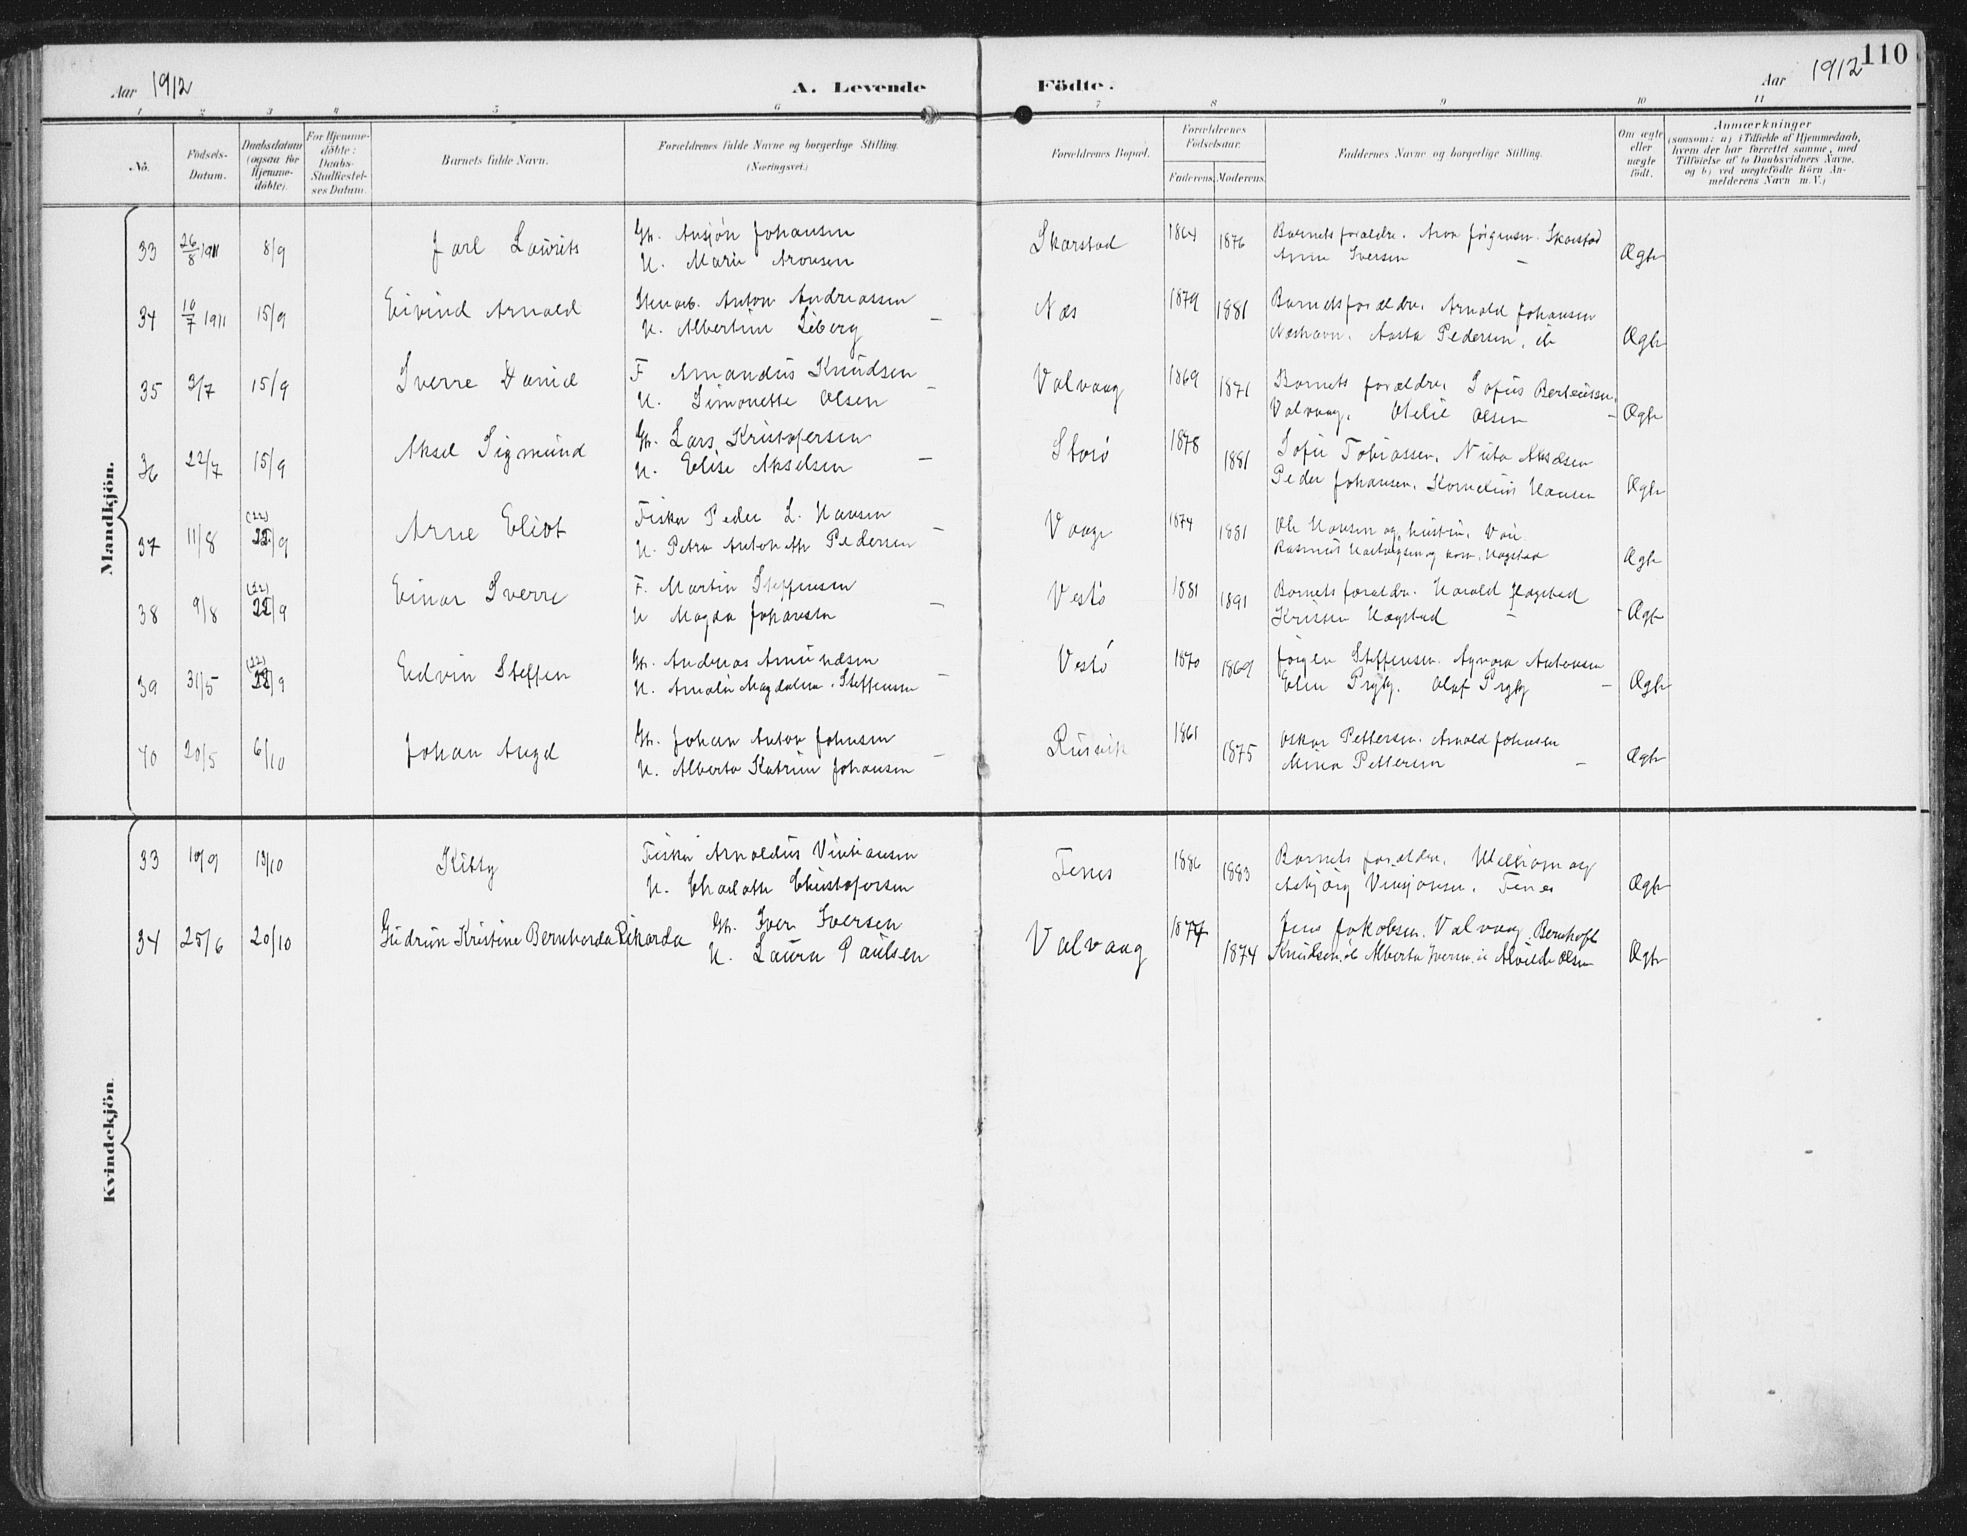 Aar 1912
A. Levende Födte.
Aar 1912
110
1 2 3 4 5 6 7 8 9 10 11
No.
Födsels-Datum.
Daabsdatum (ogsaa for Hjemme-döbte).
For Hjemme-döbte: Daabs-Stadfæstel-ses Datum.
Barnets fulde Navn.
Forældrenes fulde Navne og borgerlige Stilling. (Næringsvei.)
Forældrenes Bopæl.
Forældrenes Födselsaar.
Faderens. Moderens.
Faddernes Navne og borgerlige Stilling.
Om ægte eller uægte födt.
Anmærkninger
(saasom: a) i Tilfælde af Hjemmedaab, hvem der har forrettet samme, med Tilföielse af to Daabsvidners Navne, og b) ved uægtefödte Börn Anmelderens Navn m. V.)
Mandkjön.
33 26/8 1911 8/9 Jarl Laurits Gb. Ansjön Johansen Skarstad 1864 1876 Barnets forældre. Aron Jörgensen. Skarstad Ægte
H. Marie Aronsen Anna Iversen
34 10/7 1911 15/9 Eivind Arnold Anton Andreassen Næs 1879 1881 Barnets forældre. Arnold Johansen Ægte
H. Albertine Seberg Næshavn. Aasta Pedersen, ib
35 3/7 15/9 Sverre Daniel F Amandus Knudsen Valvaag 1869 1871 Barnets forældre. Sofus Ægte
H. Simonette Olsen Valvaag. Otelie Olsen
36 22/7 15/9 Aksel Sigmund Gb. Lars Kristofersen Storö 1878 1881 Sofie Tobiassen. Akselsen Ægte
H. Elise Akselsen Peder Johansen. Kornelius Hansen
37 11/8 (22) 22/9 Arne Eliot Fisker Peder L. Hansen Vaage 1874 1881 Ole Hansen og hustru. Ægte
H. Petra Antonette Pedersen Rasmus og kone. Hagstad
38 9/8 (22) 22/9 Einar Sverre F. Martin Steffensen Vestö 1881 1891 Barnets forældre. Harald Hagstad Ægte
H Magda Johansen Kristen Hagstad
39 31/5 (22) 22/9 Edvin Steffen Gb. Andreas Amundsen Vestö 1870 1869 Jörgen Steffensen. Agnora Antonsen Ægte
H. Amalie Magdalena Steffensen Elen Prytz. Olaf Prytz
40 20/5 6/10 Johan Angel Gb. Johan Anton Johnsen Rusvik 1861 1875 Oskar Pettersen. Arnold Johansen Ægte
H. Alberta Katrine Johansen Mina Pettersen
Kvindekjön.
33 10/9 13/10 Kitty Fisker Arnoldus Vintiansen Fenes 1886 1883 Barnets forældre. William og Ægte
H. Charlotte Christofersen Asbjörg Vinsjansen. Fenes
34 25/6 20/10 Gudrun Kristine Bernharda Rikarda Gb. Iver Iversen Valvaag 1874 1874 Jens Jakobsen. Valvaag. Bernhoft Ægte
H. Laura Paulsen Knudsen. ib Alberta Iversen. ib Alvilde Olsen